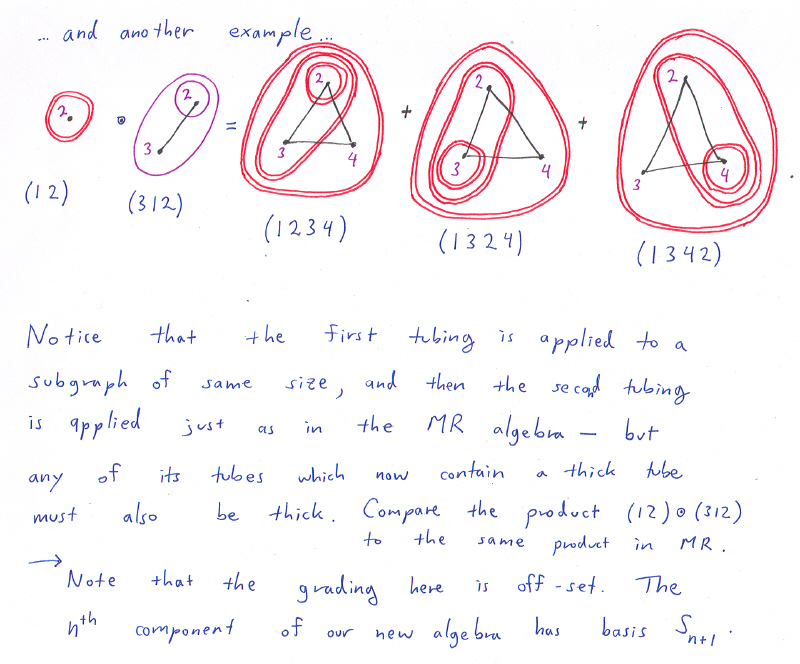 ... and another example...
2 • 2 3 = 2 3 4 + 2 3 4 + 2 3 4
(12) (312) (1234) (1324) (1342)
Notice that the first tubing is applied to a
subgraph of same size, and then the second tubing
is applied just as in the MR algebra — but
any of its tubes which now contain a thick tube
must also be thick. Compare the product (12)⊙(312)
to the same product in MR.
→ Note that the grading here is off-set. The
nth component of our new algebra has basis Sn+1.